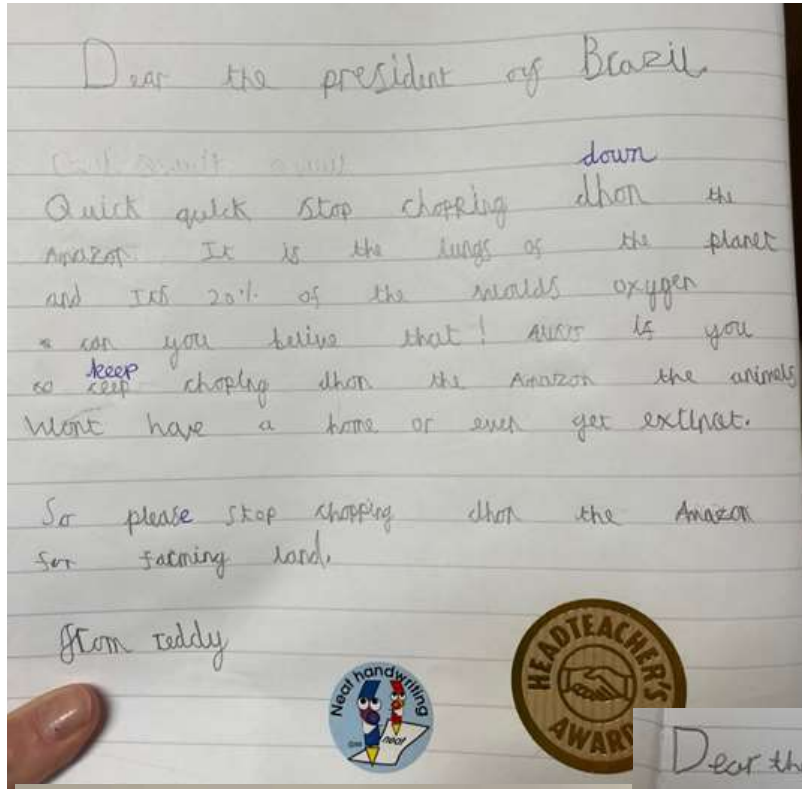 Dear the president of Brazil
down
Quick quick stop chopping dhon the
Amazon. It is the lungs of the planet
and 20% of the worlds oxygen
can you belive that! if you
keep
so ceep choping dhon the Amazon the animels
Wont have a home or even get extinct.
So please stop chopping dhon the Amazon
for farming land.
from teddy
Neat handwriting
neat
HEADTEACHER'S
AWARD
Dear th